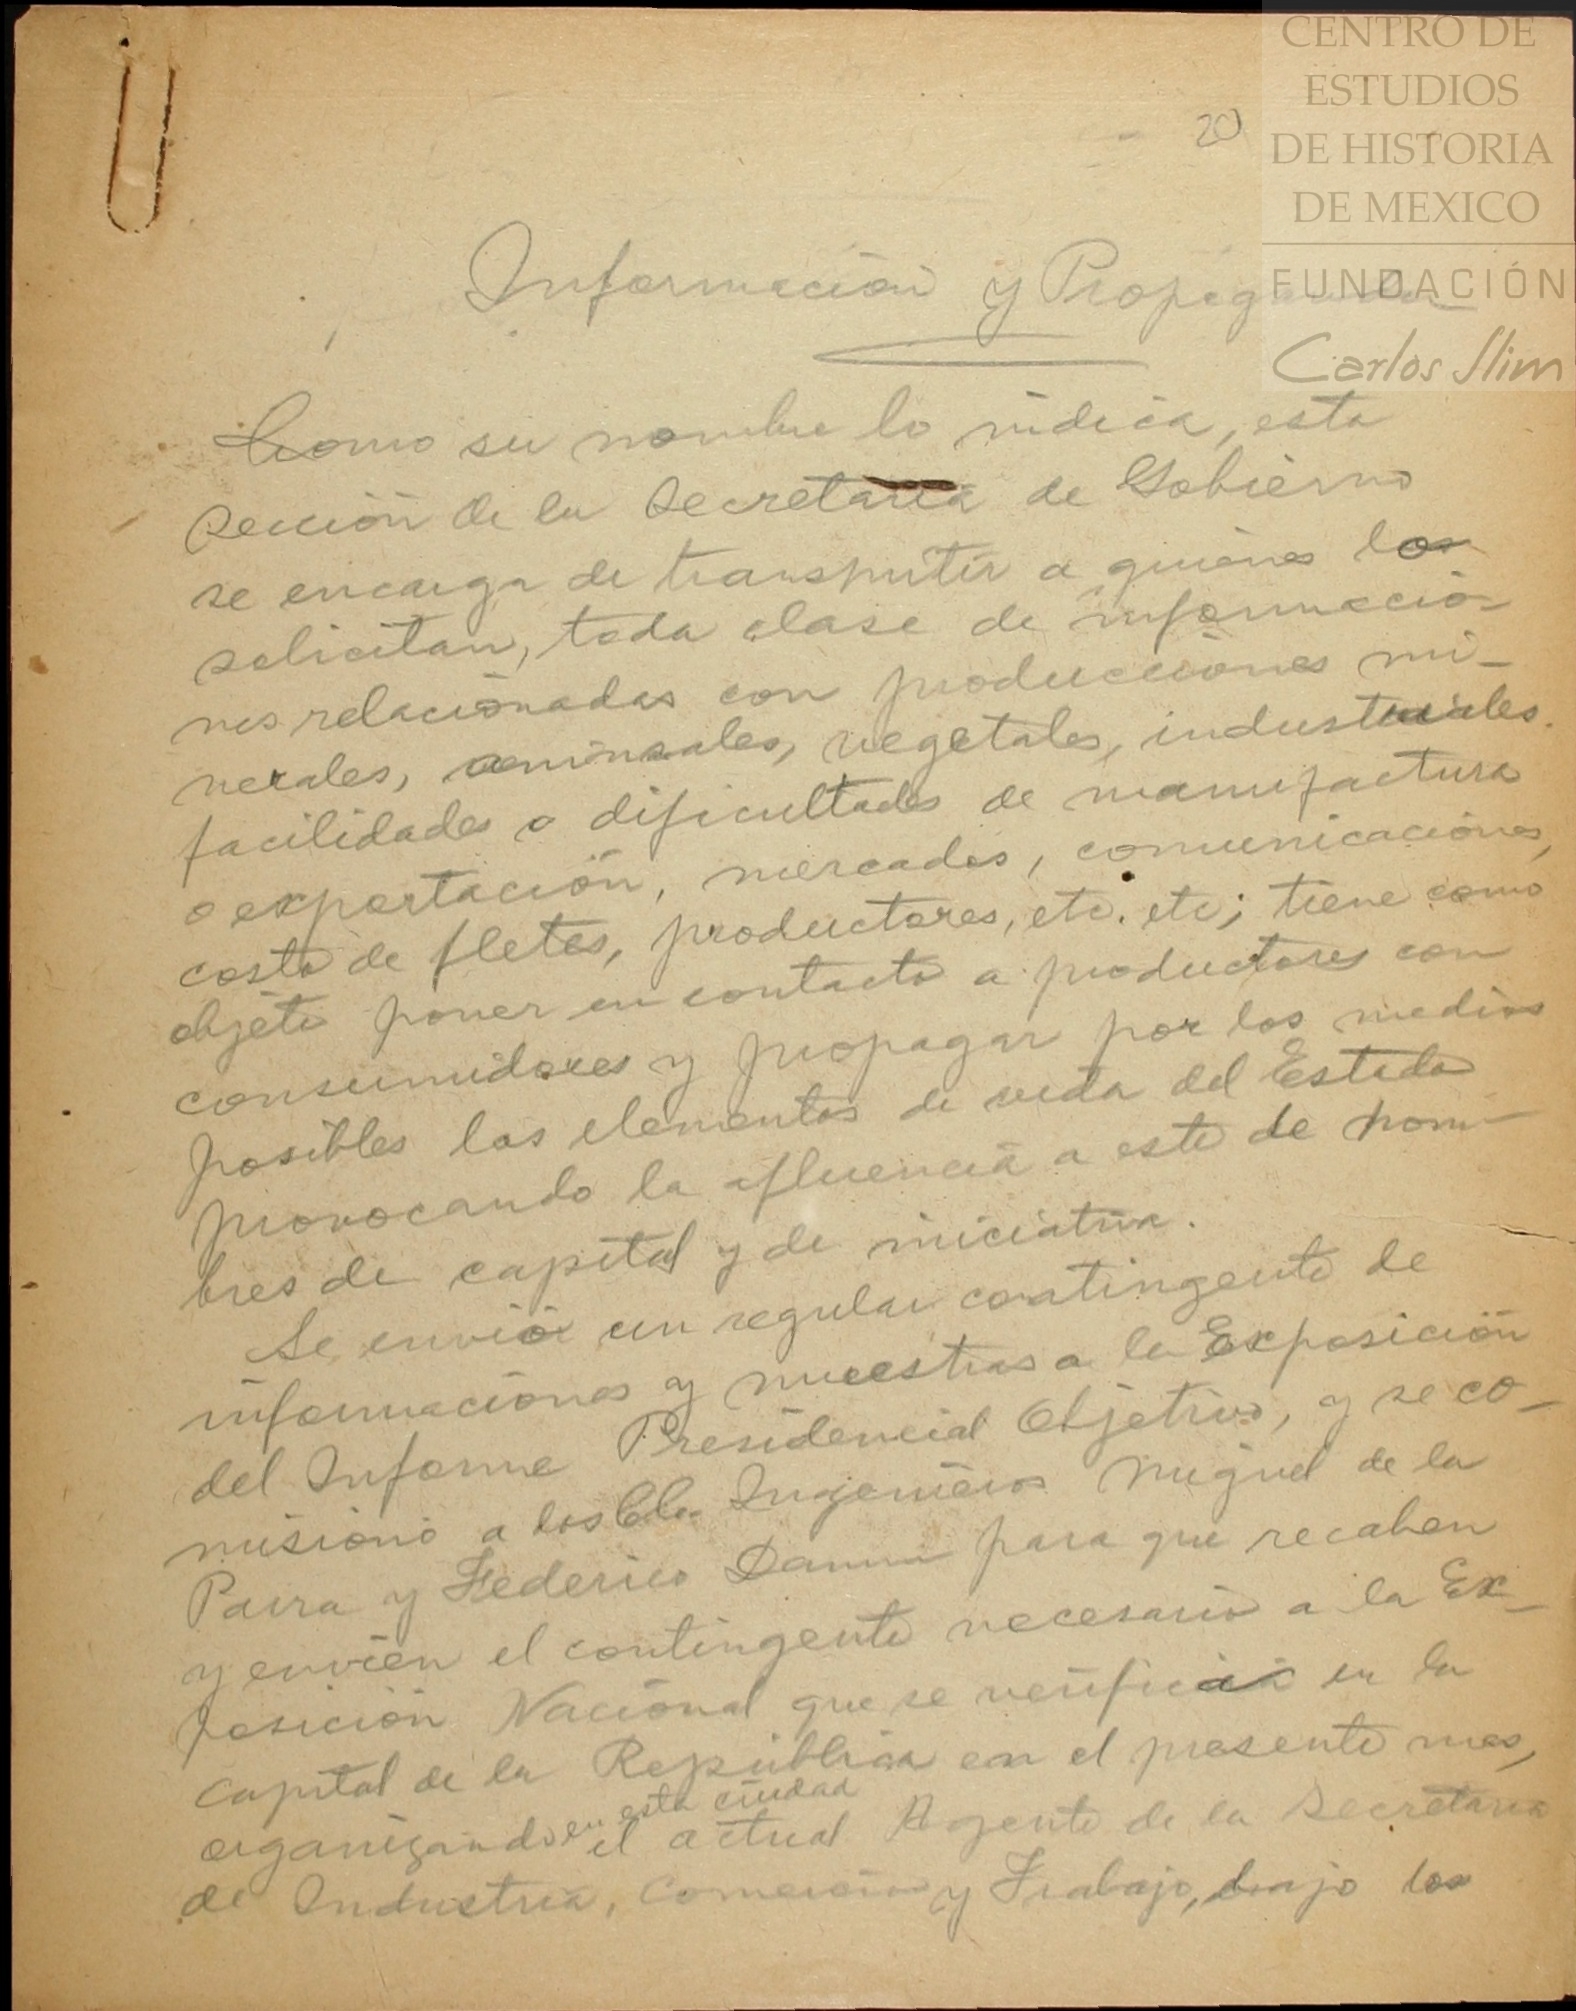 CENTRO DE
ESTUDIOS
DE HISTORIA
DE MEXICO
FUNDACIÓN
Carlos Slim
20
Información y Propaganda
Como su nombre lo indica, esta
Sección de la Secretaría de Gobierno
se encarga de transmitir a quienes los
solicitan, toda clase de informacio-
nes relacionadas con producciones mi-
nerales, animales, vegetales, industriales.
facilidades o dificultades de manufactura
o exportación, mercados, comunicaciones,
costo de fletes, productores, etc. etc; tiene como
objeto poner en contacto a productores con
consumidores y propagar por los medios
posibles los elementos de vida del Estado
provocando la afluencia a este de hom-
bres de capital y de iniciativa.
Se envió un regular contingente de
informaciones y muestras a la Exposición
del Informe Presidencial Objetivo, y se co-
misionó a los CC. Ingenieros Miguel de la
Parra y Federico Damm para que recaben
y envíen el contingente necesario a la Ex-
posición Nacional que se verificará en la
capital de la República en el presente mes,
organizando en esta ciudad el actual Agente de la Secretaría
de Industria, Comercio y Trabajo, bajo los